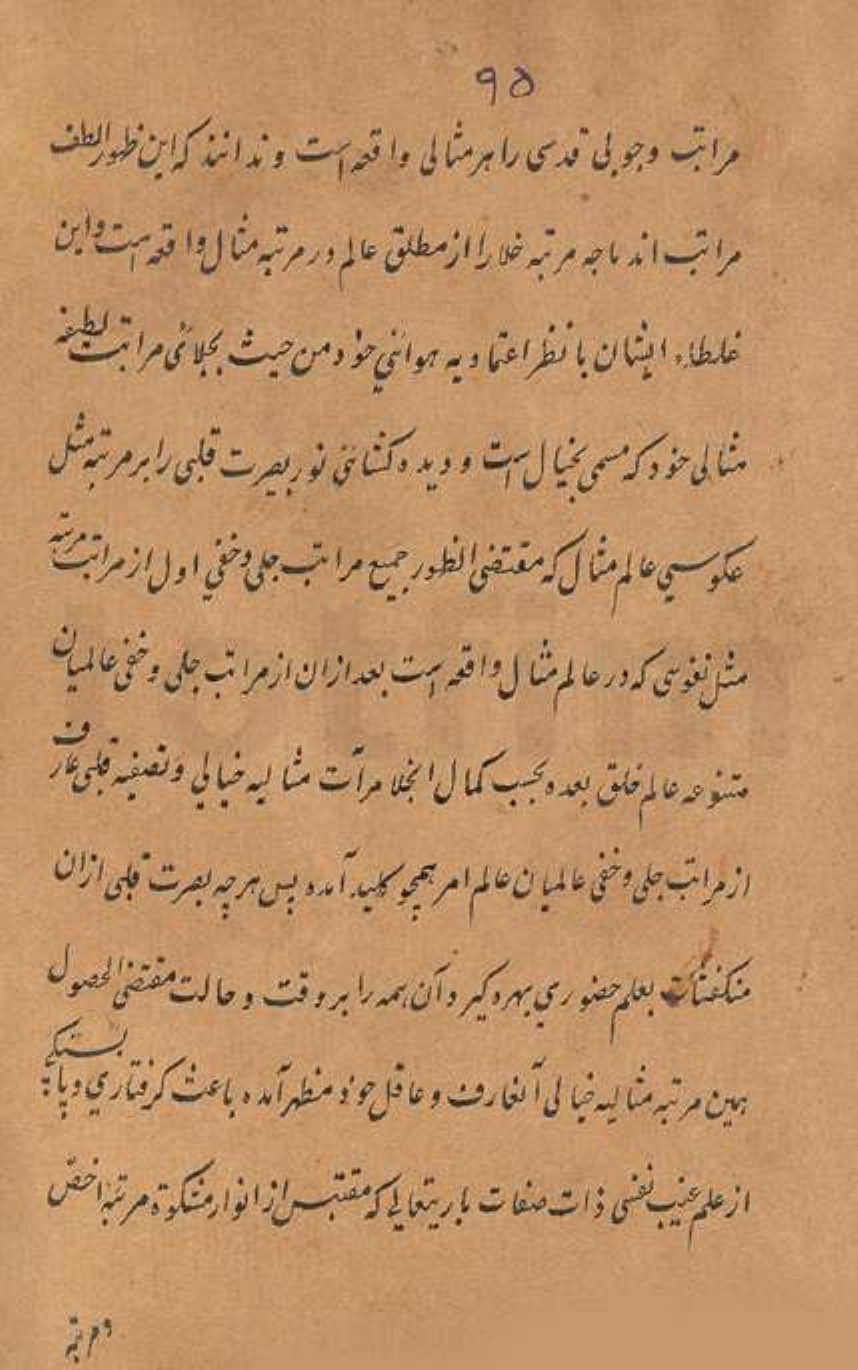 ۹۵
مراتب وجوبی قدسی را هر مثالی واقعه است و ندانند که این ظهور الطف
مراتب اند باجه مرتبه خلا را از مطلق عالم در مرتبه مثال واقعه است و این
غلطاء ایشان با نظر اعتمادیه هوائی خود من حیث بجلائی مراتب لطیفه
مثالی خود که مسمی بخیال است و دیده کشائی نور بصرت قلبی را بر مرتبه مثل
عکوسی عالم مثال که مقتضی الظهور جمیع مراتب جلی و خفی اول از مراتب مرتبه
مثل نفوسی که در عالم مثال واقعه است بعد ازان از مراتب جلی و خفی عالمیان
متنوعه عالم خلق بعده بحسب کمال انجلا مرآت مثالیه خیالی و تصفیه قلبی عارف
از مراتب جلی و خفی عالمیان عالم امر همچو کلید آمده پس هرچه بصرت قلبی ازان
بعلم حضوری بهره گیرد آن همه را بر وقت و حالت مقتضی الحصول
همین مرتبه مثالیه خیالی آنعارف و عاقل خود منظهر آمده باعث گرفتاری و پا بستگی
از علم غیب نفسی ذات صفات باریتعالی که مقتبس از انوار مشکوة مرتبه اخص
ومرتبه